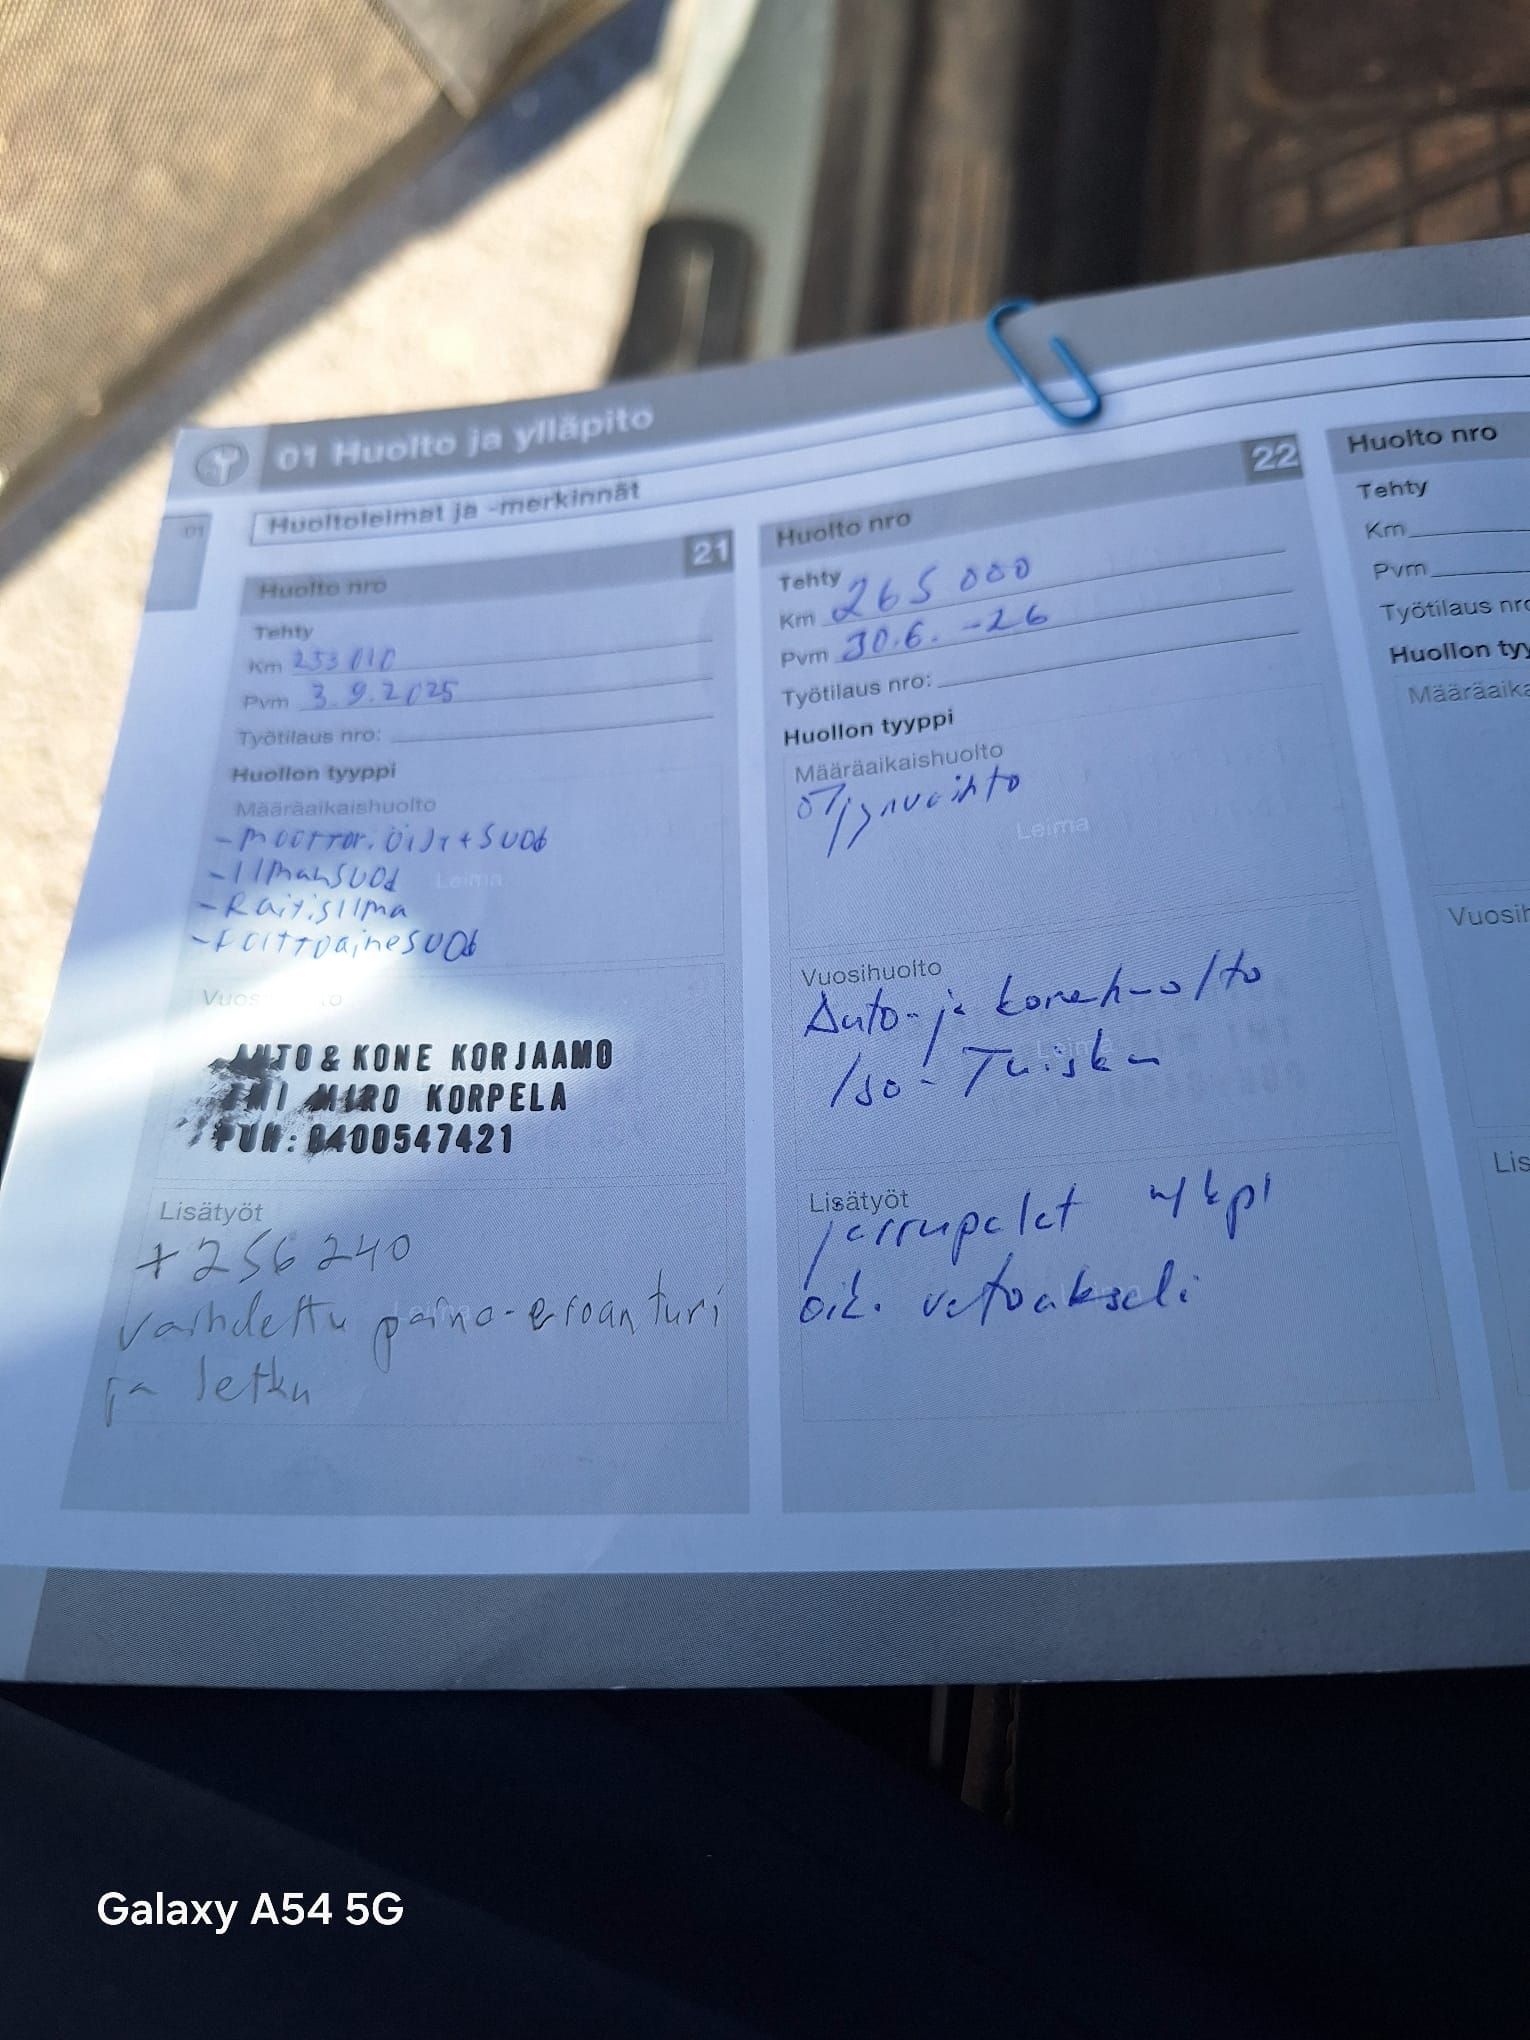 01 Huolto ja ylläpito
01
Huoltoleimat ja -merkinnät
Huolto nro 21
Tehty
Km 253 010
Pvm 3.9.2025
Työtilaus nro:
Huollon tyyppi
Määräaikaishuolto
- moottor. öljy + suod
- Ilmansuod
Leima
- Raitisilma
- Polttoainesuod
AUTO & KONE KORJAAMO
TMI MIRO KORPELA
PUH: 0400547421
Lisätyöt
+ 256 240
vaihdettu paine-eroanturi
Leima
ja letku
Huolto nro 22
Tehty
Km 265 000
Pvm 30.6.-26
Työtilaus nro:
Huollon tyyppi
Määräaikaishuolto
öljynvaihto
Leima
Vuosihuolto
Auto- ja konehuolto
Leima
Iso-Tuisku
Lisätyöt
jarrupalat 4 kpl
oik. vetoakseli
Huolto nro
Tehty
Km
Pvm
Työtilaus nro
Huollon tyy
Määräaika
Vuosih
Lis
Galaxy A54 5G